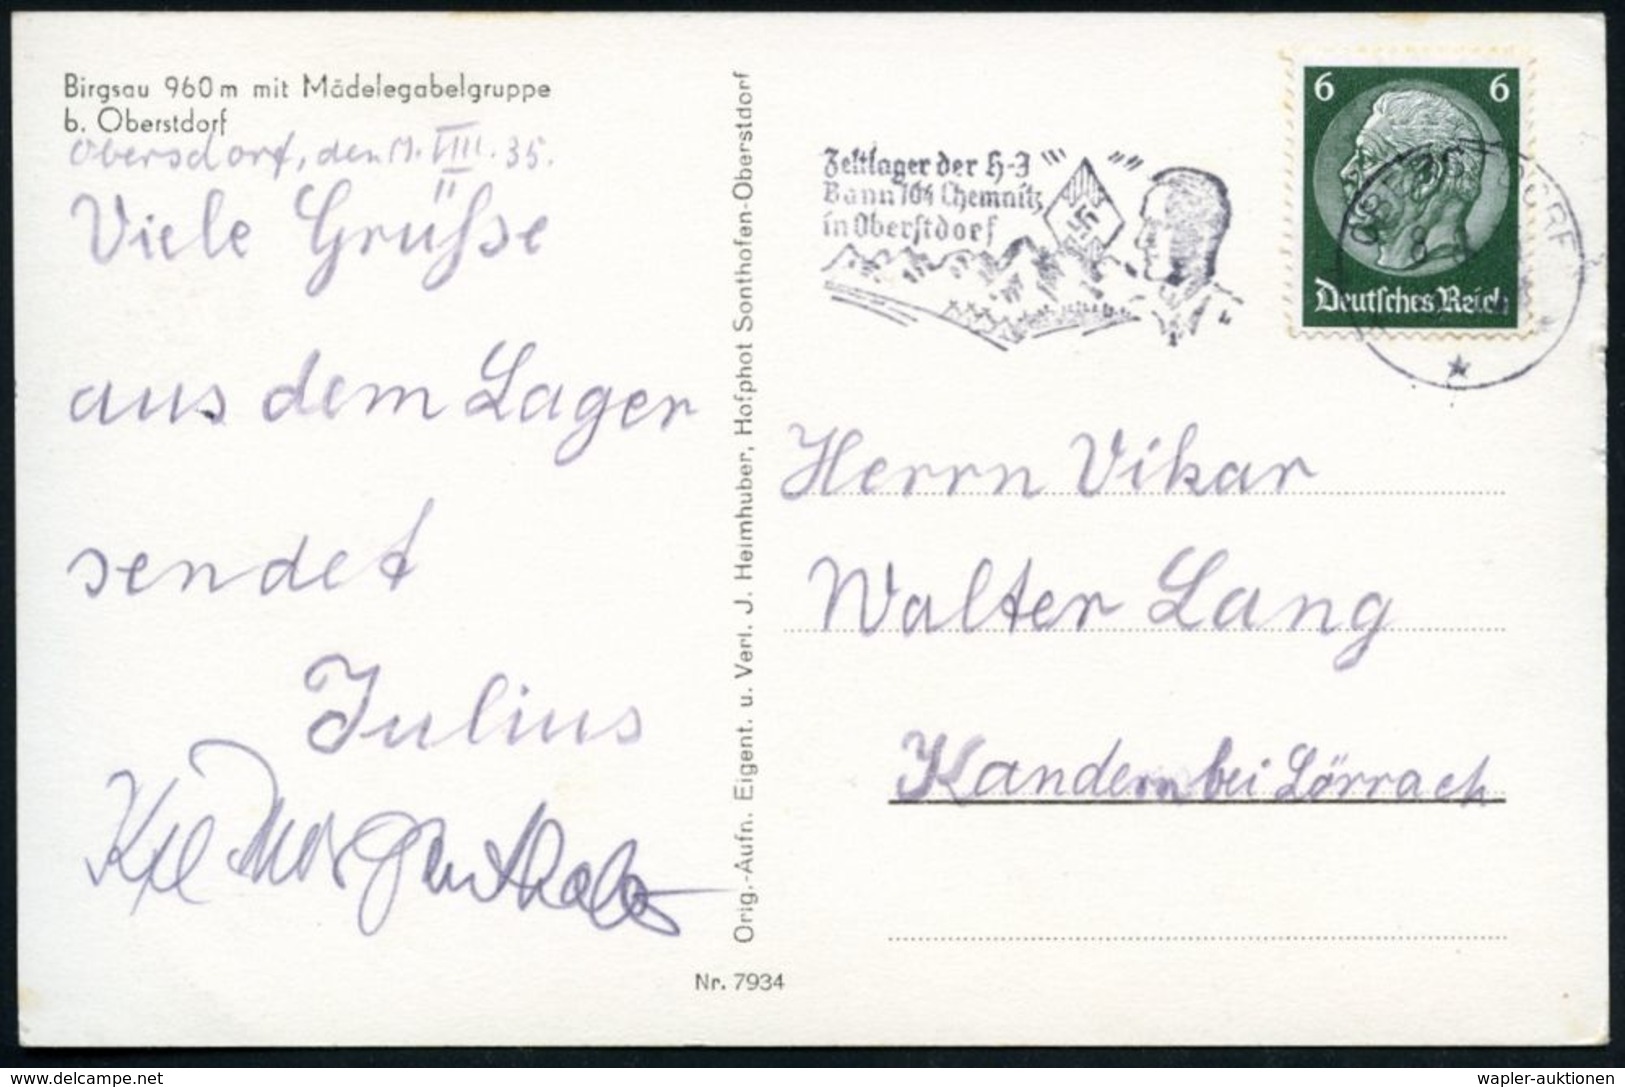 Birgsau 960 m mit Mädelegabelgruppe
b. Oberstdorf
Obersdorf, den VIII. 35.
Viele Grüße
aus dem Lager
sendet
Julius
Orig.-Aufn. Eigent. u. Verl. J. Heimhuber, Hofphot Sonthofen-Oberstdorf
Nr. 7934
Zeltlager der H-J
Bann 104 Chemnitz
in Oberstdorf
6 6
Deutsches Reich
Herrn Vikar
Walter Lang
Kandern bei Lörrach
delcampe.net
wapler-auktionen